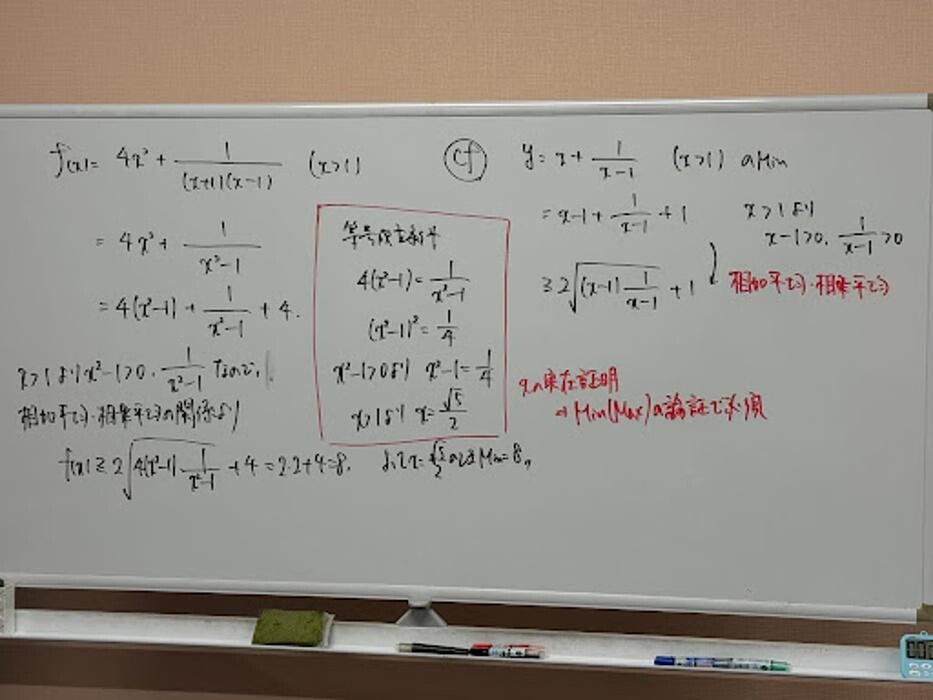 f(x) = 4x² + 1/((x+1)(x-1)) (x>1)
= 4x² + 1/(x²-1)
= 4(x²-1) + 1/(x²-1) + 4.
x>1よりx²-1>0, 1/(x²-1) なので,
相加平均・相乗平均の関係より
f(x) ≥ 2√(4(x²-1)·1/(x²-1)) + 4 = 2·2+4 = 8. よってx=√5/2のときMin=8〃
等号成立条件
4(x²-1) = 1/(x²-1)
(x²-1)² = 1/4
x²-1>0より x²-1 = 1/4
x>1より x = √5/2
cf y = x + 1/(x-1) (x>1) のMin
= x-1 + 1/(x-1) + 1
x>1より
x-1>0, 1/(x-1)>0
≥ 2√((x-1)·1/(x-1)) + 1
相加平均・相乗平均
xの存在証明
→Min(Max)の論証で必須